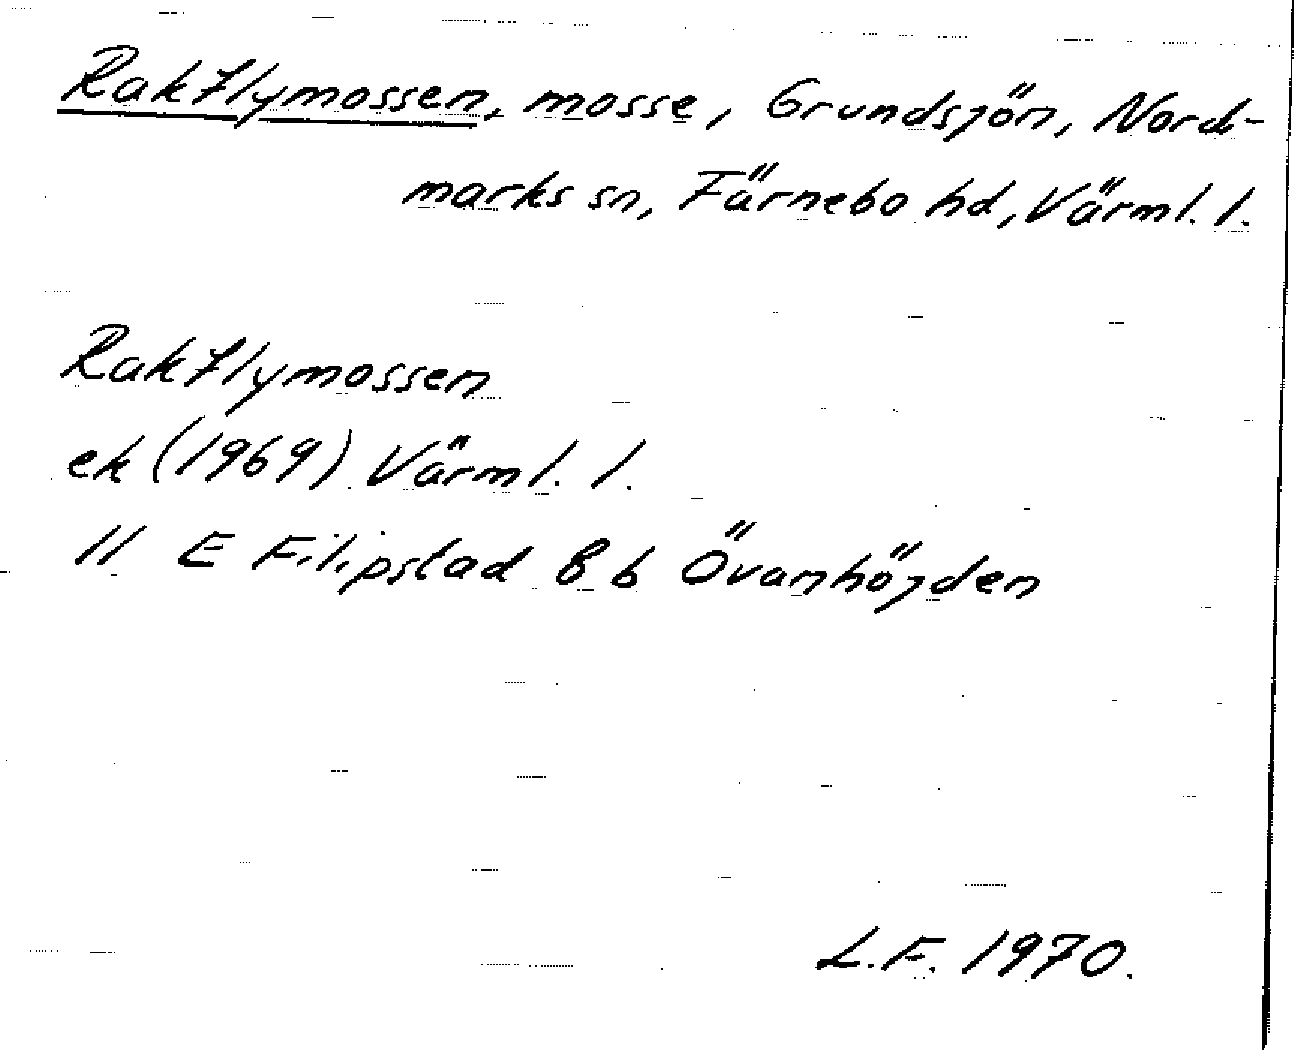 Rakflymossen, mosse, Grundsjön, Nord-
marks sn, Färnebo hd, Värml. l.
Rakflymossen
ek (1969) Värml. l.
11 E Filipstad 8 b Övanhöjden
L.F. 1970.